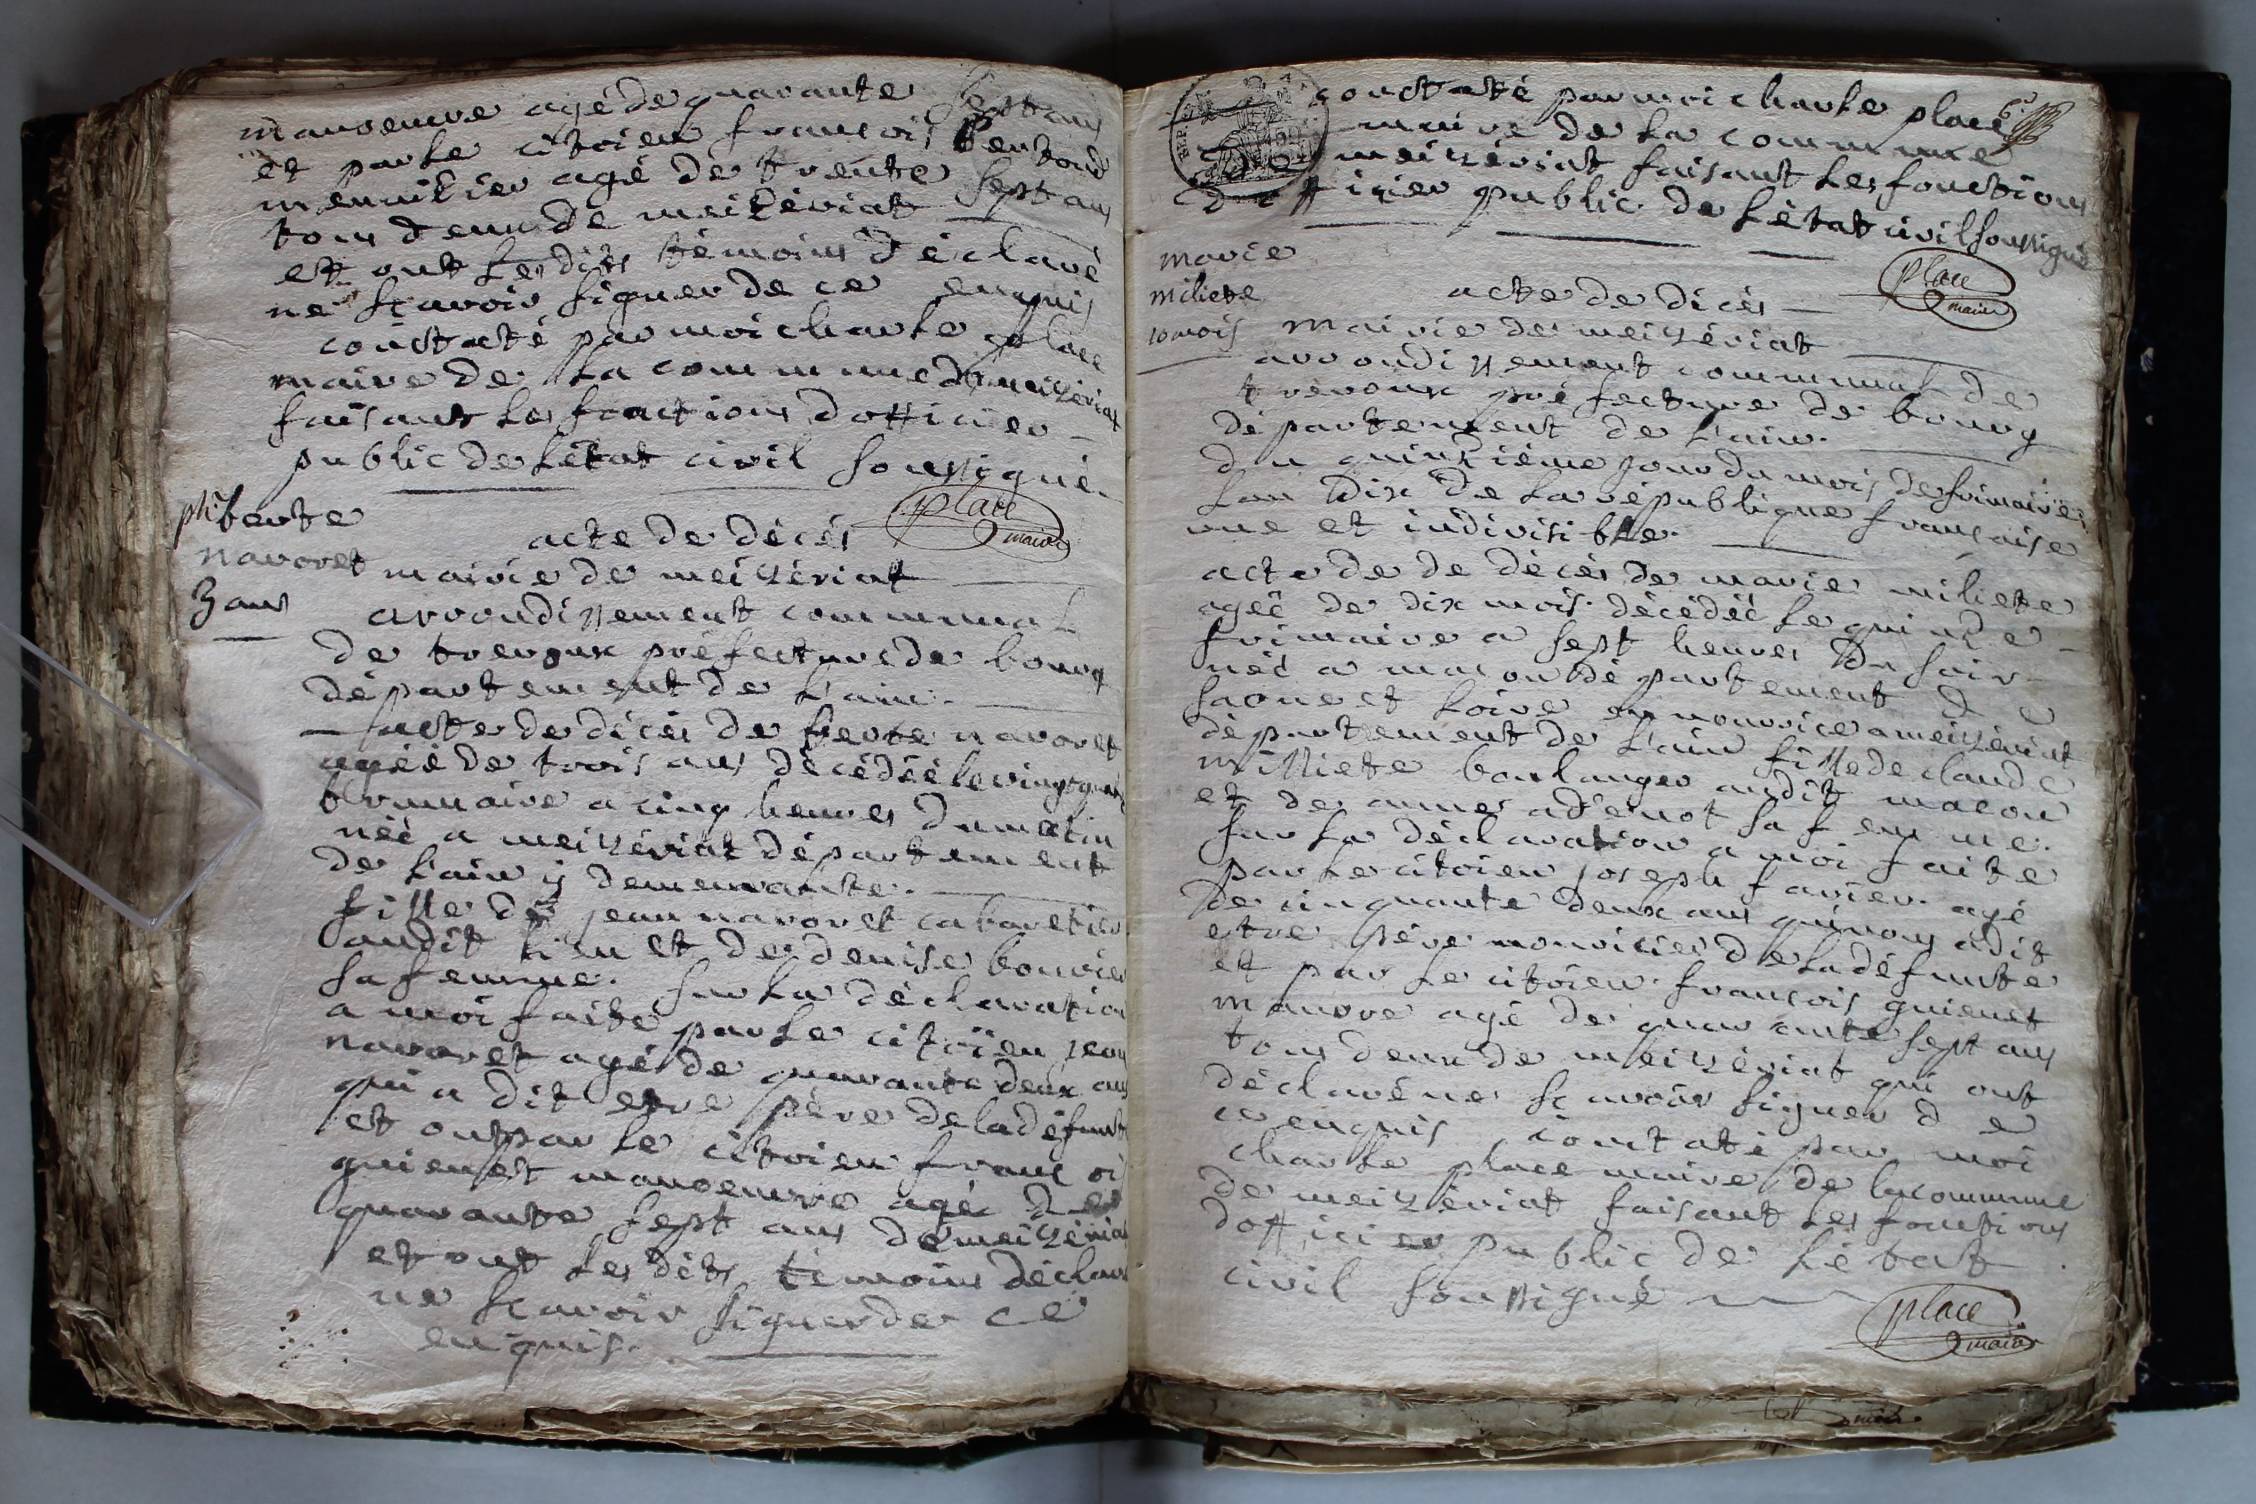 manoeuvre agé de quarante sept ans
et par le citoien francois
menuitier agé de trente sept ans
tous deux de meitzériat
et ont les dits témoins déclaré
ne scavoir signer de ce enquis
constaté par moi charle place
maire de la commune de meitzériat
faisant les fonctions dofficier
public de létat civil soussigné
place
maire
berte
navoret
3 ans
acte de décés
mairie de meitzériat
arrondissement communal
de trevoux préfecture de bourg
département de l'ain.
acte de dicés de berte navoret
agéé de trois ans décédéé le vingt
brumaire a cinq heures du matin
néé a meitzériat département
de l'ain y demeurante.
fille de jean navoret cabaretier
audit lieu et de denise bouvier
sa femme. sur la déclaration
a moi faite par le citoien jean
navoret agé de quarante deux ans
qui a dit etre père de la défunte
et par le citoien francoi
guienet manoeuvre agé de
quarante sept ans de meitzériat
et ont les dits témoins déclaré
ne scavoir signer de ce
enquis.
constaté par moi charle place
maire de la commune
meitzériat faisant les fonctions
dofficier public de létat civil soussigné
place
maire
marie
miliete
10 mois
acte de dicés
mairie de meitzériat
arrondissement communal de
trevoux préfecture de bourg
département de l'ain.
du quinzième jour du mois de frimaire
lan dix de la république francaise
une et indivisible.
acte de de décés de marie miliete
ageé de dix mois. décédéé le quinze
frimaire a sept heures du soir
néé a macon département de
saone et loire en nourice a meitzériat
département de l'ain fille de claude
milliete boulanger audit macon
et de anne adenot sa femme.
sur la déclaration a moi faite
par le citoien joseph favier. agé
de cinquante deux ans qui nous a dit
etre père nouricier de la défunte
et par le citoien francois guienet
manvre agé de quarante sept ans
tous deux de meitzériat qui ont
déclaré ne scavoir signer de
ce enquis constaté par moi
charle place maire de la commune
de meitzériat faisant les fonctions
dofficier public de létat
civil soussigné
place
maire